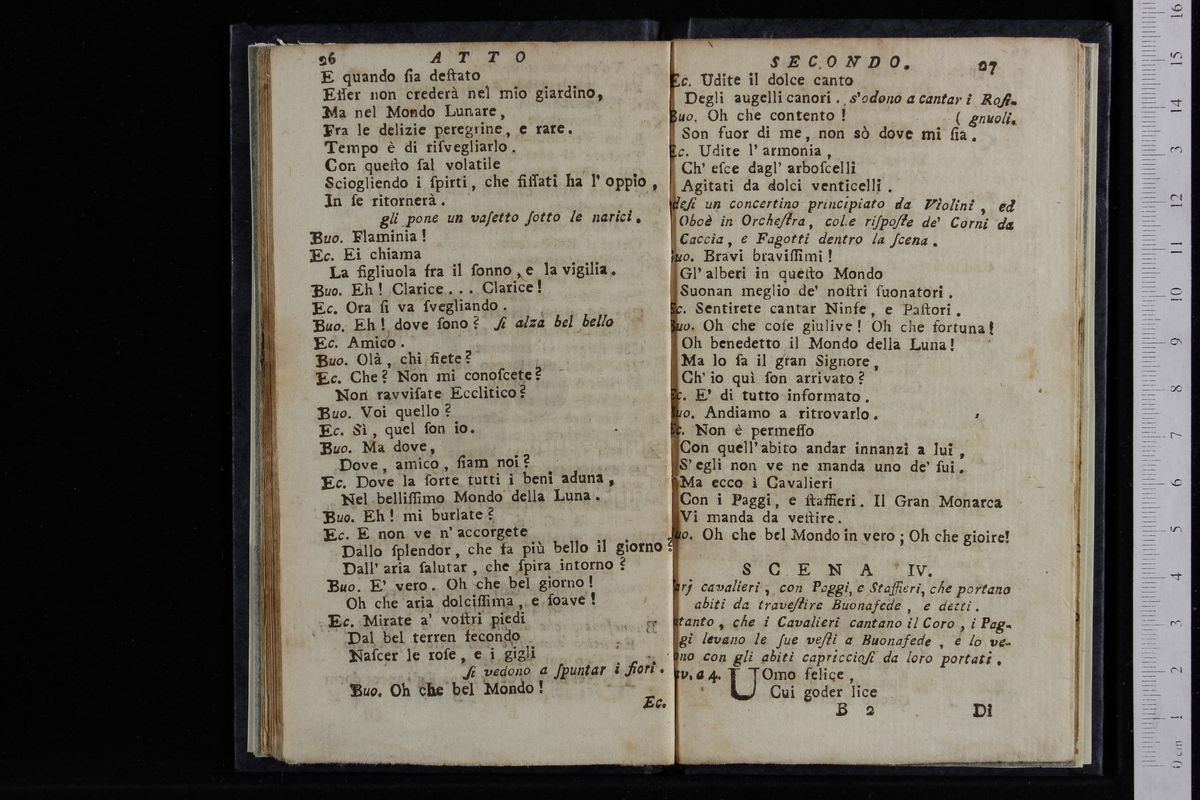 26 ATTO
E quando ſia deſtato
Eſſer non crederà nel mio giardino,
Ma nel Mondo Lunare,
Fra le delizie peregrine, e rare.
Tempo è di riſvegliarlo.
Con queſto ſal volatile
Sciogliendo i ſpirti, che fiſſati ha l' oppio,
In ſe ritornerà.
gli pone un vaſetto ſotto le narici.
Buo. Flaminia!
Ec. Ei chiama
La figliuola fra il ſonno, e la vigilia.
Buo. Eh! Clarice... Clarice!
Ec. Ora ſi va ſvegliando.
Buo. Eh! dove ſono? ſi alza bel bello
Ec. Amico.
Buo. Olà, chi ſiete?
Ec. Che? Non mi conoſcete?
Non ravviſate Ecclitico?
Buo. Voi quello?
Ec. Sì, quel ſon io.
Buo. Ma dove,
Dove, amico, ſiam noi?
Ec. Dove la ſorte tutti i beni aduna,
Nel belliſſimo Mondo della Luna.
Buo. Eh! mi burlate?
Ec. E non ve n' accorgete
Dallo ſplendor, che fa più bello il giorno?
Dall' aria ſalutar, che ſpira intorno?
Buo. E' vero. Oh che bel giorno!
Oh che aria dolciſſima, e ſoave!
Ec. Mirate a' voſtri piedi
Dal bel terren fecondo
Naſcer le roſe, e i gigli
ſi vedono a ſpuntar i fiori.
Buo. Oh che bel Mondo!
Ec.
SECONDO. 27
Ec. Udite il dolce canto
Degli augelli canori. s'odono a cantar i Roſi-
Buo. Oh che contento! (gnuoli.
Son fuor di me, non sò dove mi ſia.
Ec. Udite l' armonia,
Ch' eſce dagl' arboſcelli
Agitati da dolci venticelli.
deſi un concertino principiato da Violini, ed
Oboè in Orcheſtra, colle riſpoſte de' Corni da
Caccia, e Fagotti dentro la ſcena.
uo. Bravi braviſſimi!
Gl' alberi in queſto Mondo
Suonan meglio de' noſtri ſuonatori.
Ec. Sentirete cantar Ninfe, e Paſtori.
Buo. Oh che coſe giulive! Oh che fortuna!
Oh benedetto il Mondo della Luna!
Ma lo ſa il gran Signore,
Ch' io quì ſon arrivato?
Ec. E' di tutto informato.
Buo. Andiamo a ritrovarlo.
Ec. Non è permeſſo
Con quell' abito andar innanzi a lui,
S' egli non ve ne manda uno de' ſui.
Ma ecco i Cavalieri
Con i Paggi, e ſtaffieri. Il Gran Monarca
Vi manda da veſtire.
uo. Oh che bel Mondo in vero; Oh che gioire!
SCENA IV.
arj cavalieri, con Paggi, e Staffieri, che portano
abiti da traveſtire Buonafede, e detti.
ntanto, che i Cavalieri cantano il Coro, i Pag-
gi levano le ſue veſti a Buonafede, e lo ve-
ono con gli abiti capriccioſi da loro portati.
av. a 4. UOmo felice,
Cui goder lice
B 2 Di